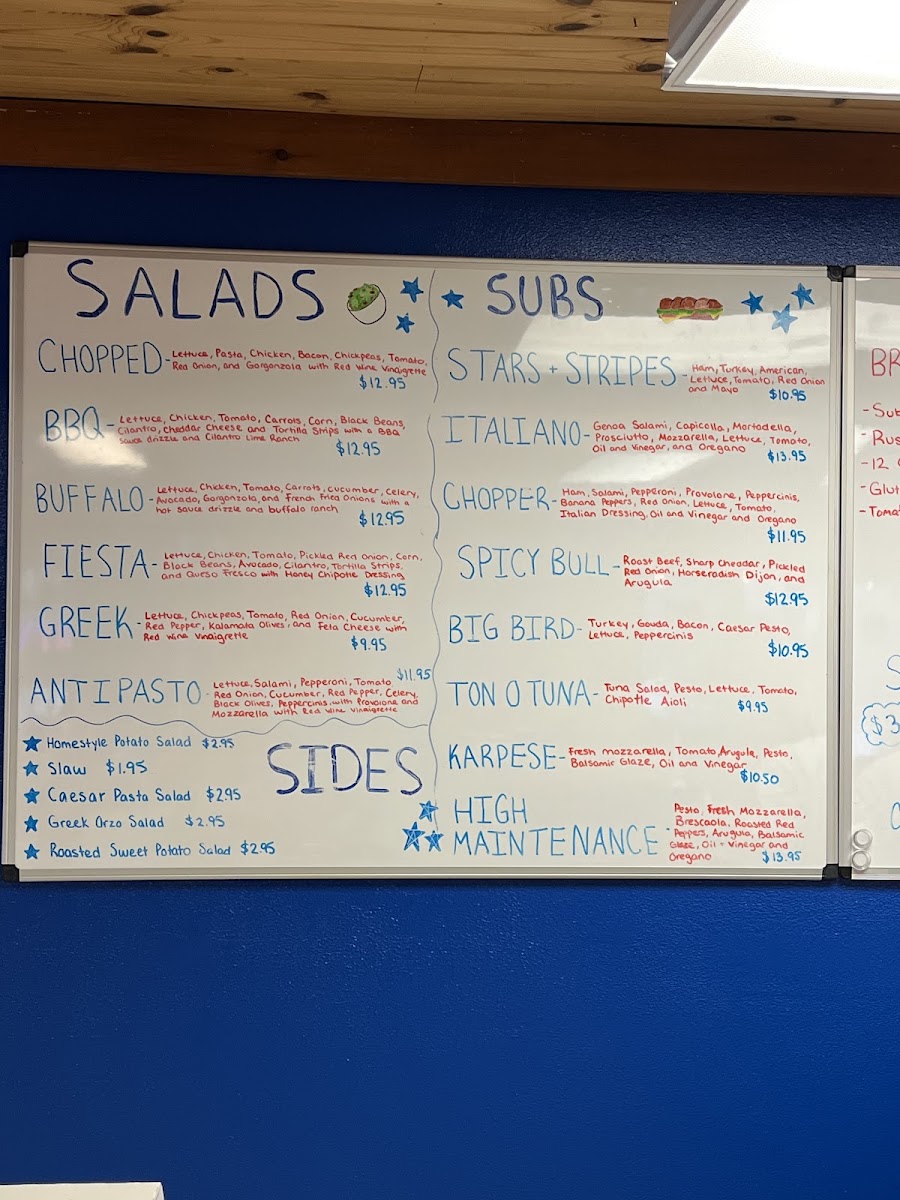 SALADS
CHOPPED - Lettuce, Pasta, Chicken, Bacon, Chickpeas, Tomato,
Red Onion, and Gorgonzola with Red Wine Vinaigrette
$12.95
BBQ - Lettuce, Chicken, Tomato, Carrots, Corn, Black Beans,
Cilantro, Cheddar Cheese and Tortilla Strips with a BBQ
sauce drizzle and Cilantro Lime Ranch
$12.95
BUFFALO - Lettuce, Chicken, Tomato, Carrots, Cucumber, Celery,
Avocado, Gorgonzola, and French Fried Onions with a
hot sauce drizzle and buffalo ranch
$12.95
FIESTA - Lettuce, Chicken, Tomato, Pickled Red Onion, Corn,
Black Beans, Avocado, Cilantro, Tortilla Strips,
and Queso Fresco with Honey Chipotle Dressing
$12.95
GREEK - Lettuce, Chickpeas, Tomato, Red Onion, Cucumber,
Red Pepper, Kalamata Olives, and Feta Cheese with
Red Wine Vinaigrette
$9.95
ANTIPASTO - Lettuce, Salami, Pepperoni, Tomato $11.95
Red Onion, Cucumber, Red Pepper, Celery,
Black Olives, Peppercinis, with Provolone and
Mozzarella with Red Wine Vinaigrette
SIDES
Homestyle Potato Salad $2.95
Slaw $1.95
Caesar Pasta Salad $2.95
Greek Orzo Salad $2.95
Roasted Sweet Potato Salad $2.95
SUBS
STARS + STRIPES - Ham, Turkey, American,
Lettuce, Tomato, Red Onion
and Mayo
$10.95
ITALIANO - Genoa Salami, Capicolla, Mortadella,
Prosciutto, Mozzarella, Lettuce, Tomato,
Oil and Vinegar, and Oregano
$13.95
CHOPPER - Ham, Salami, Pepperoni, Provolone, Peppercinis,
Banana Peppers, Red Onion, Lettuce, Tomato,
Italian Dressing, Oil and Vinegar and Oregano
$11.95
SPICY BULL - Roast Beef, Sharp Cheddar, Pickled
Red Onion, Horseradish Dijon, and
Arugula
$12.95
BIG BIRD - Turkey, Gouda, Bacon, Caesar Pesto,
Lettuce, Peppercinis
$10.95
TON O TUNA - Tuna Salad, Pesto, Lettuce, Tomato,
Chipotle Aioli
$9.95
KARPESE - Fresh mozzarella, Tomato, Arugula, Pesto,
Balsamic Glaze, Oil and Vinegar
$10.50
HIGH
MAINTENANCE - Pesto, Fresh Mozzarella,
Brescaola, Roasted Red
Peppers, Arugula, Balsamic
Glaze, Oil + Vinegar and
Oregano
$13.95
BR
- Sub
- Rus
- 12
- Glut
- Toma
$3